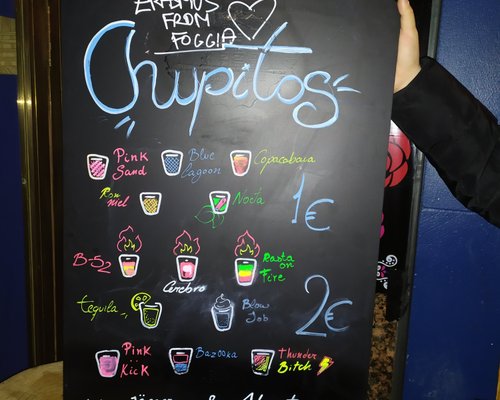 ERASMUS
FROM
FOGGIA
Chupitos
Pink
Sand
Blue
lagoon
Copacabana
Ron
miel
Nocta
1€
B-52
Cerebro
Rasta
on
Fire
tequila
Blow
Job
2€
Pink
Kick
Bazooka
Thunder
Bitch